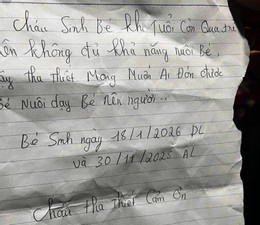 Cháu Sinh Bé khi Tuổi Còn Quá trẻ
nên không đủ khả năng nuôi Bé,
thu thiết Mong Muốn Ai Đón được
Bé Nuôi dạy Bé Nên người...
Bé Sinh ngày 18/1/2026 DL
và 30/11/2025 AL
Cháu Tha Thiết Cảm Ơn